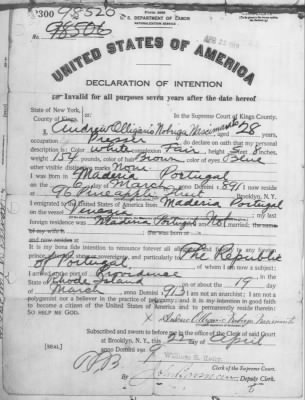 98520
2300
No. 98506
Form 2203
U. S. DEPARTMENT OF LABOR
NATURALIZATION SERVICE
UNITED STATES OF AMERICA
DECLARATION OF INTENTION
Invalid for all purposes seven years after the date hereof
State of New York,
County of Kings,
In the Supreme Court of Kings County.
I, Andrew Nobriga aged 28 years,
occupation do declare on oath that my personal
description is: Color White complexion Fair height 5 feet 8 inches,
weight 154 pounds, color of hair Brown color of eyes Blue
other visible distinctive marks None
I was born in Maderia Portugal
on the 6 day of March anno Domini 1891 I now reside
at 96 Pineapple Street Brooklyn, N. Y.
I emigrated to the United States of America from Maderia Portugal
on the vessel my last
foreign residence was Maderia Portugal Not married; the name
of my wife is she was born at
and now resides at
It is my bona fide intention to renounce forever all allegiance to any foreign
prince, potentate, state, or sovereignty, and particularly to The Republic
of Portugal of whom I am now a subject;
I arrived at the port of Providence
Rhode Island on or about the 19 day
of March anno Domini 1913 I am not an anarchist; I am not a
polygamist nor a believer in the practice of polygamy; and it is my intention in good faith
to become a citizen of the United States of America and to permanently reside therein:
SO HELP ME GOD.
Subscribed and sworn to before me in the office of the Clerk of said Court
at Brooklyn, N. Y., this 22 day of April
[SEAL]
anno Domini 19
Clerk of the Supreme Court.
By Deputy Clerk.